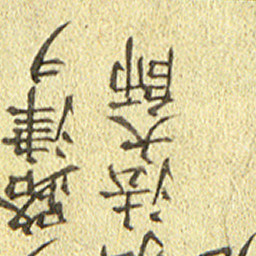 路津ヲ
法大師